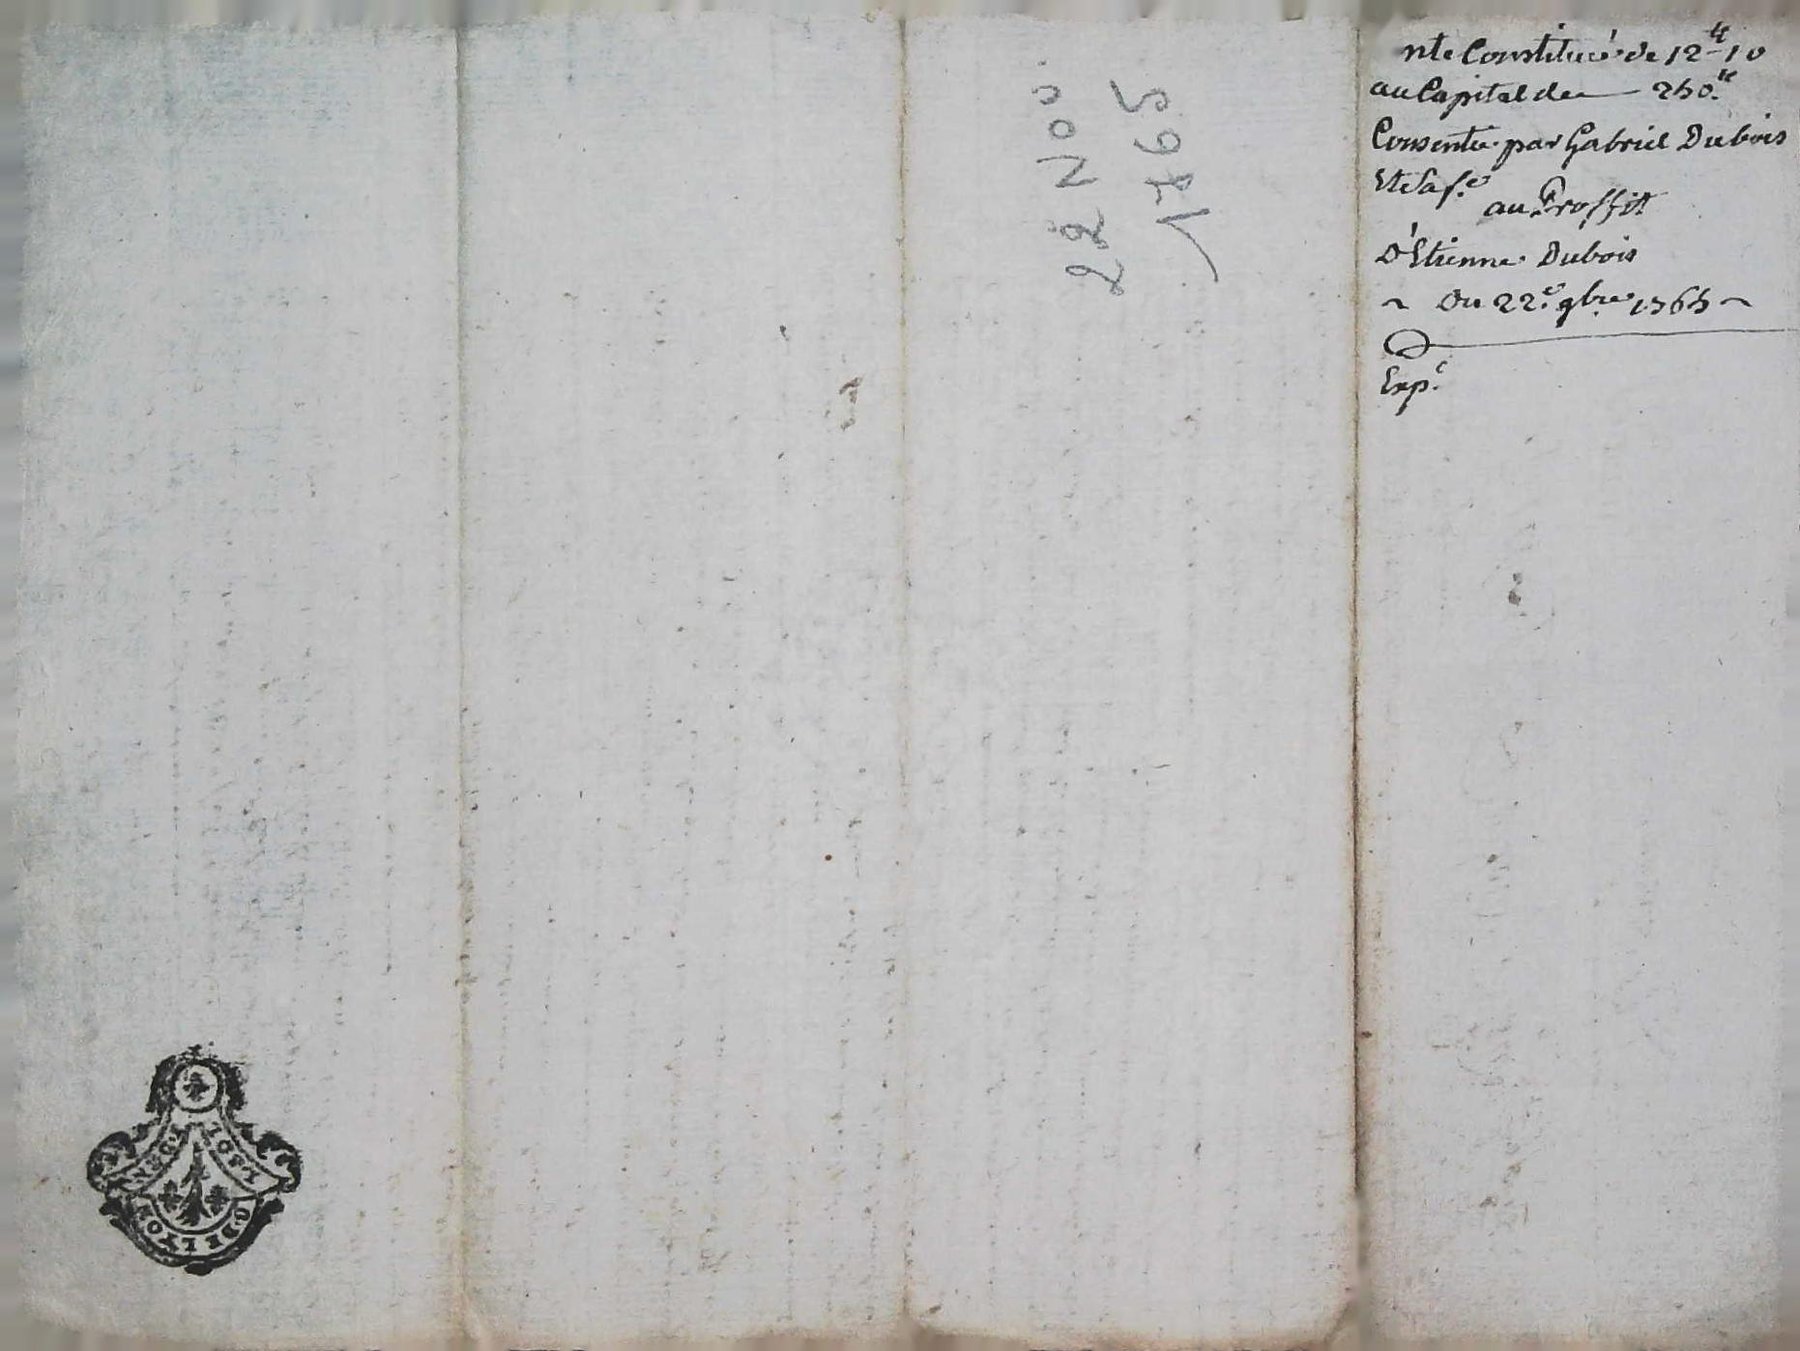 nte Constituée de 12 ᵗᵗ 10
au Capital de 250 ᵗᵗ
Consentie par Gabriel Dubois
Et Sa f.e
au Proffit
D'Etienne Dubois
~ Du 22.e 9bre 1765 ~
Exp.e
22 Nov
1765
G DE LYON